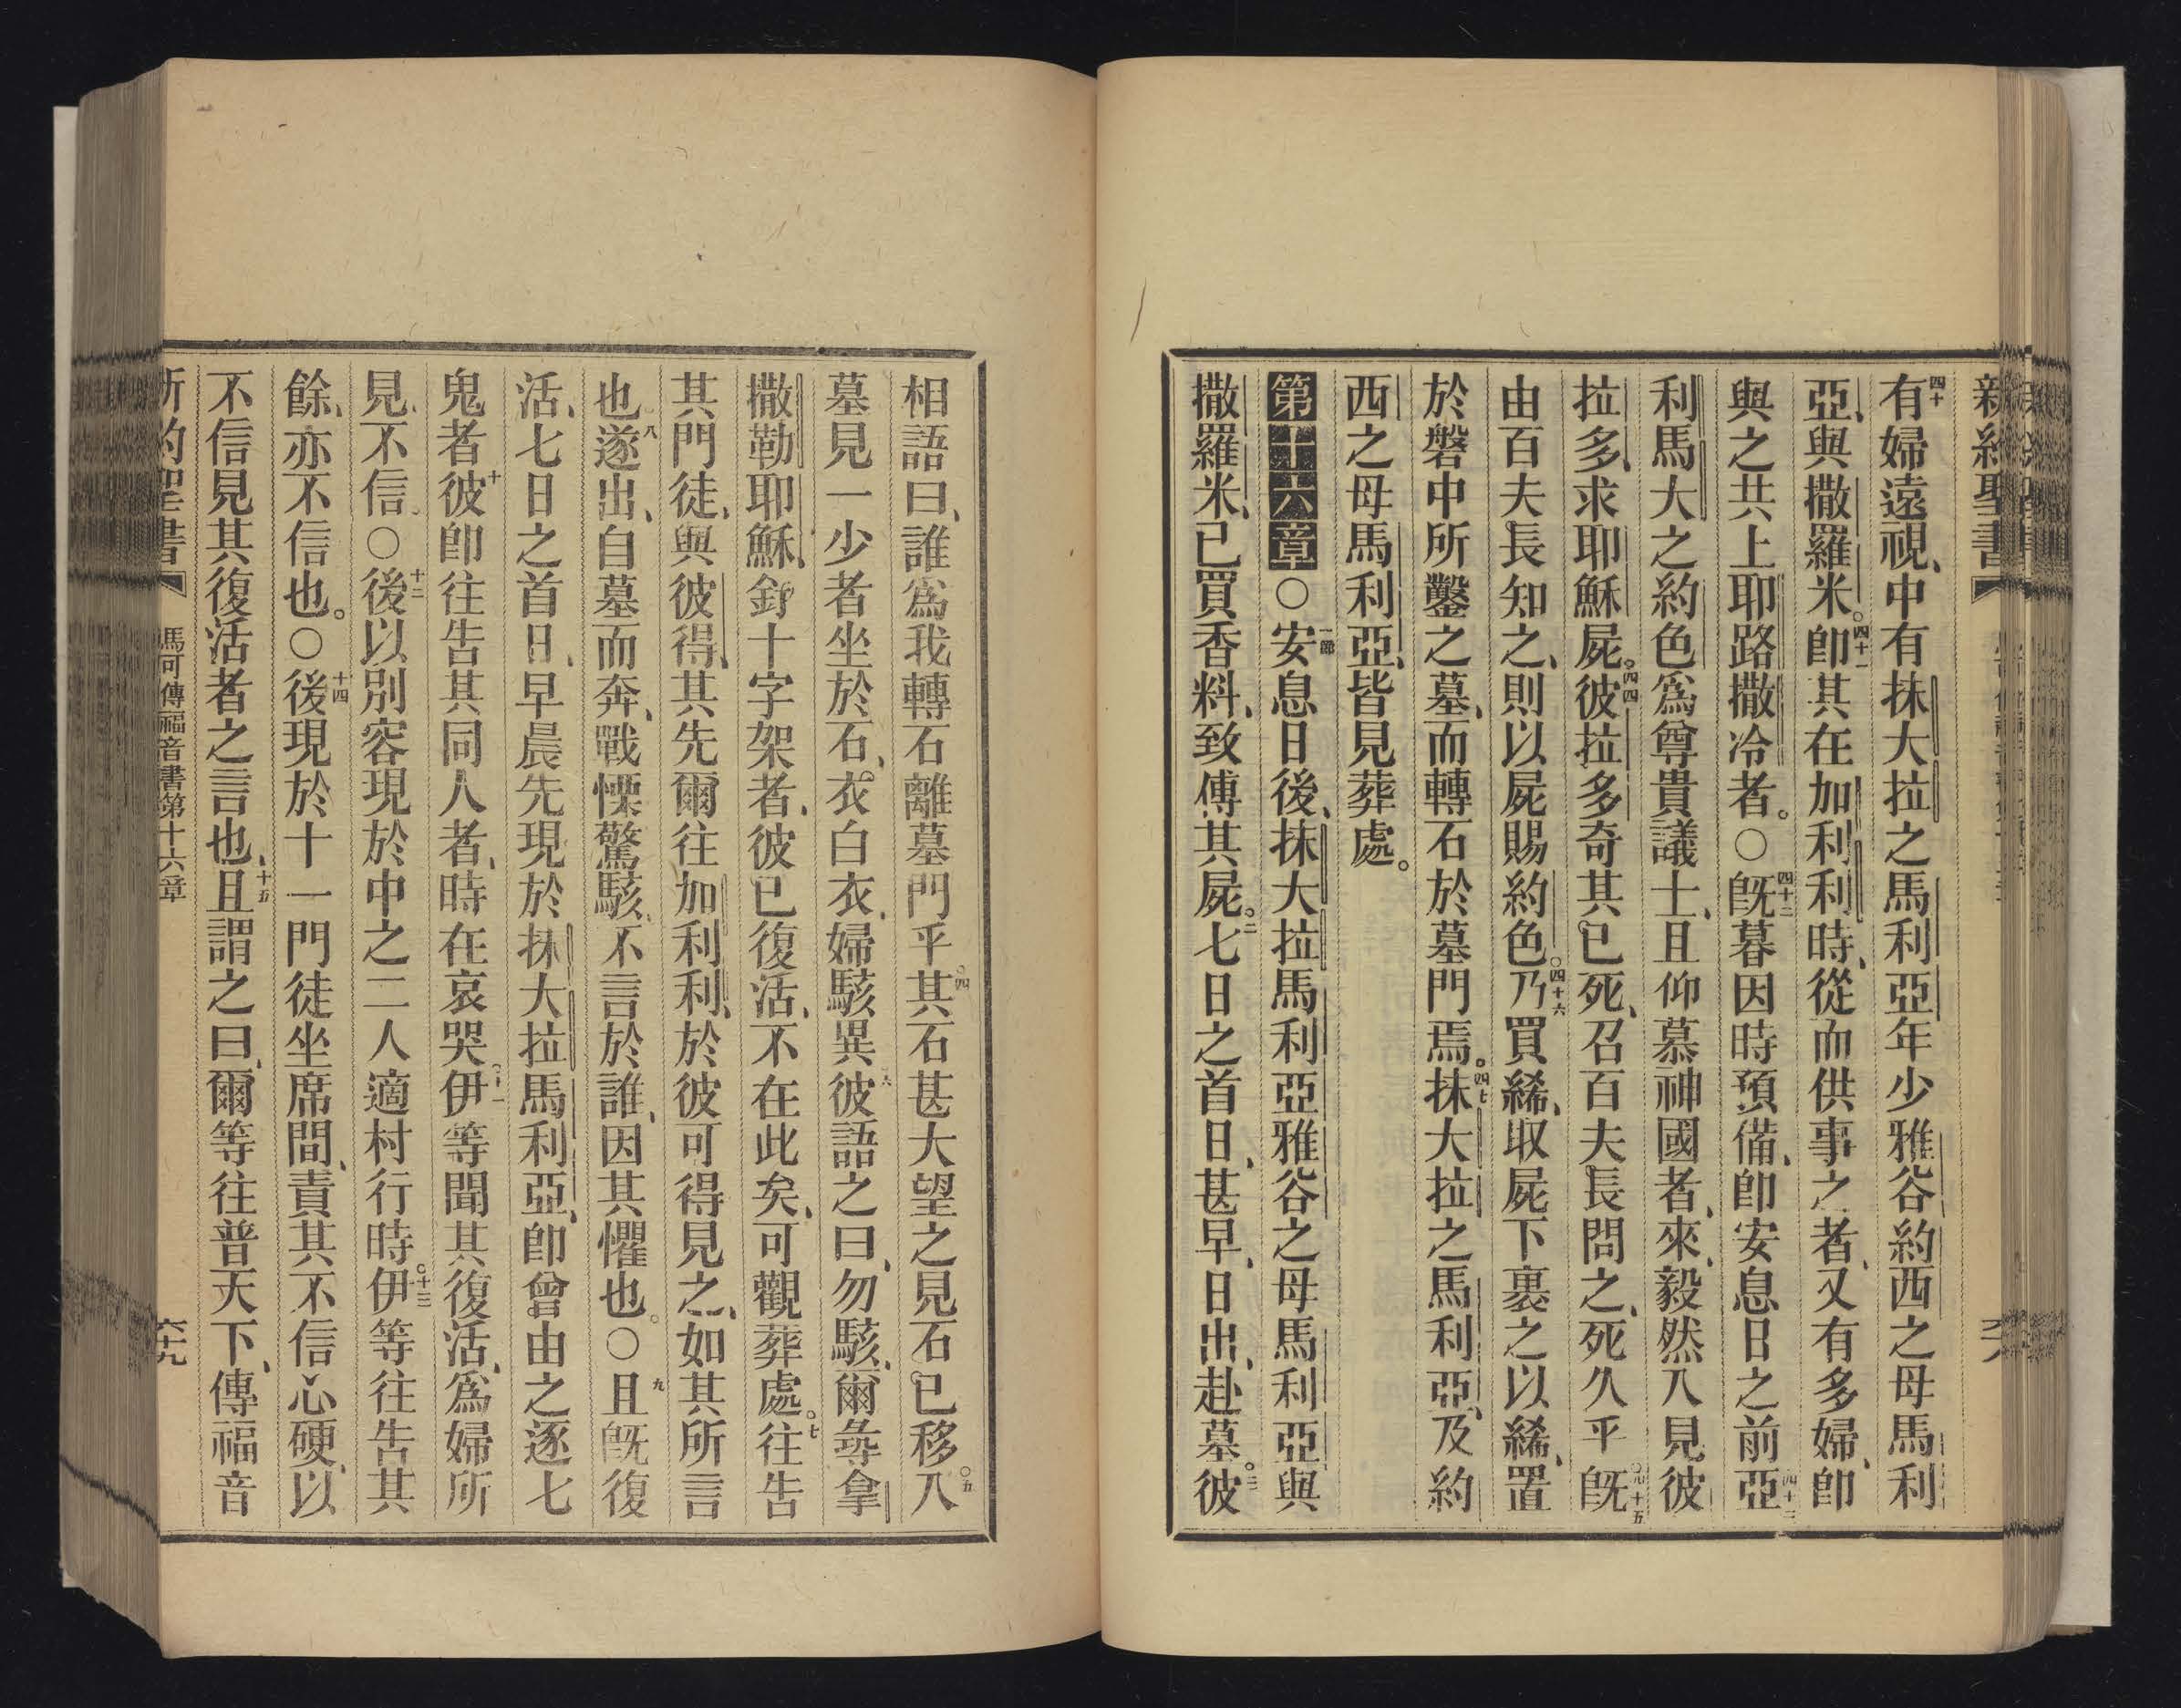 新約聖書
四十有婦遠視、中有抹大拉之馬利亞年少雅谷約西之母馬利
亞、與撒羅米。四十一卽其在加利利時、從而供事之者、又有多婦、卽
與之共上耶路撒冷者。○四十二旣暮因時預備、卽安息日之前四十三亞
利馬大之約色爲尊貴議士、且仰慕神國者、來、毅然入見彼
拉多、求耶穌屍。四四彼拉多奇其已死、召百夫長問之、死久乎四十五旣
由百夫長知之、則以屍賜約色。四十六乃買絺、取屍下裹之以絺、置
於磐中所鑿之墓、而轉石於墓門焉。四七抹大拉之馬利亞、及約
西之母馬利亞、皆見葬處。
第十六章○一節安息日後、抹大拉馬利亞雅谷之母馬利亞與
撒羅米、已買香料、致傅其屍。二七日之首日、甚早、日出、赴墓。三彼
相語曰、誰爲我轉石離墓門乎。四其石甚大望之見石已移。五入
墓見一少者坐於石、衣白衣、婦駭異六彼語之曰、勿駭、爾尋拿
撒勒耶穌、釘十字架者、彼已復活、不在此矣、可觀葬處。七往告
其門徒、與彼得、其先爾往加利利、於彼可得見之、如其所言
也八遂出、自墓而奔、戰慄驚駭、不言於誰、因其懼也。○九且旣復
活、七日之首日、早晨先現於抹大拉馬利亞、卽曾由之逐七
鬼者十彼卽往告其同人者、時在哀哭十一伊等聞其復活、爲婦所
見、不信。○十二後以別容現於中之二人適村行時。十三伊等往告其
餘、亦不信也。○十四後現於十一門徒坐席間、責其不信心硬、以
不信見其復活者之言也、十五且謂之曰、爾等往普天下、傳福音
新約聖書 馬可傳福音書第十六章 六十九